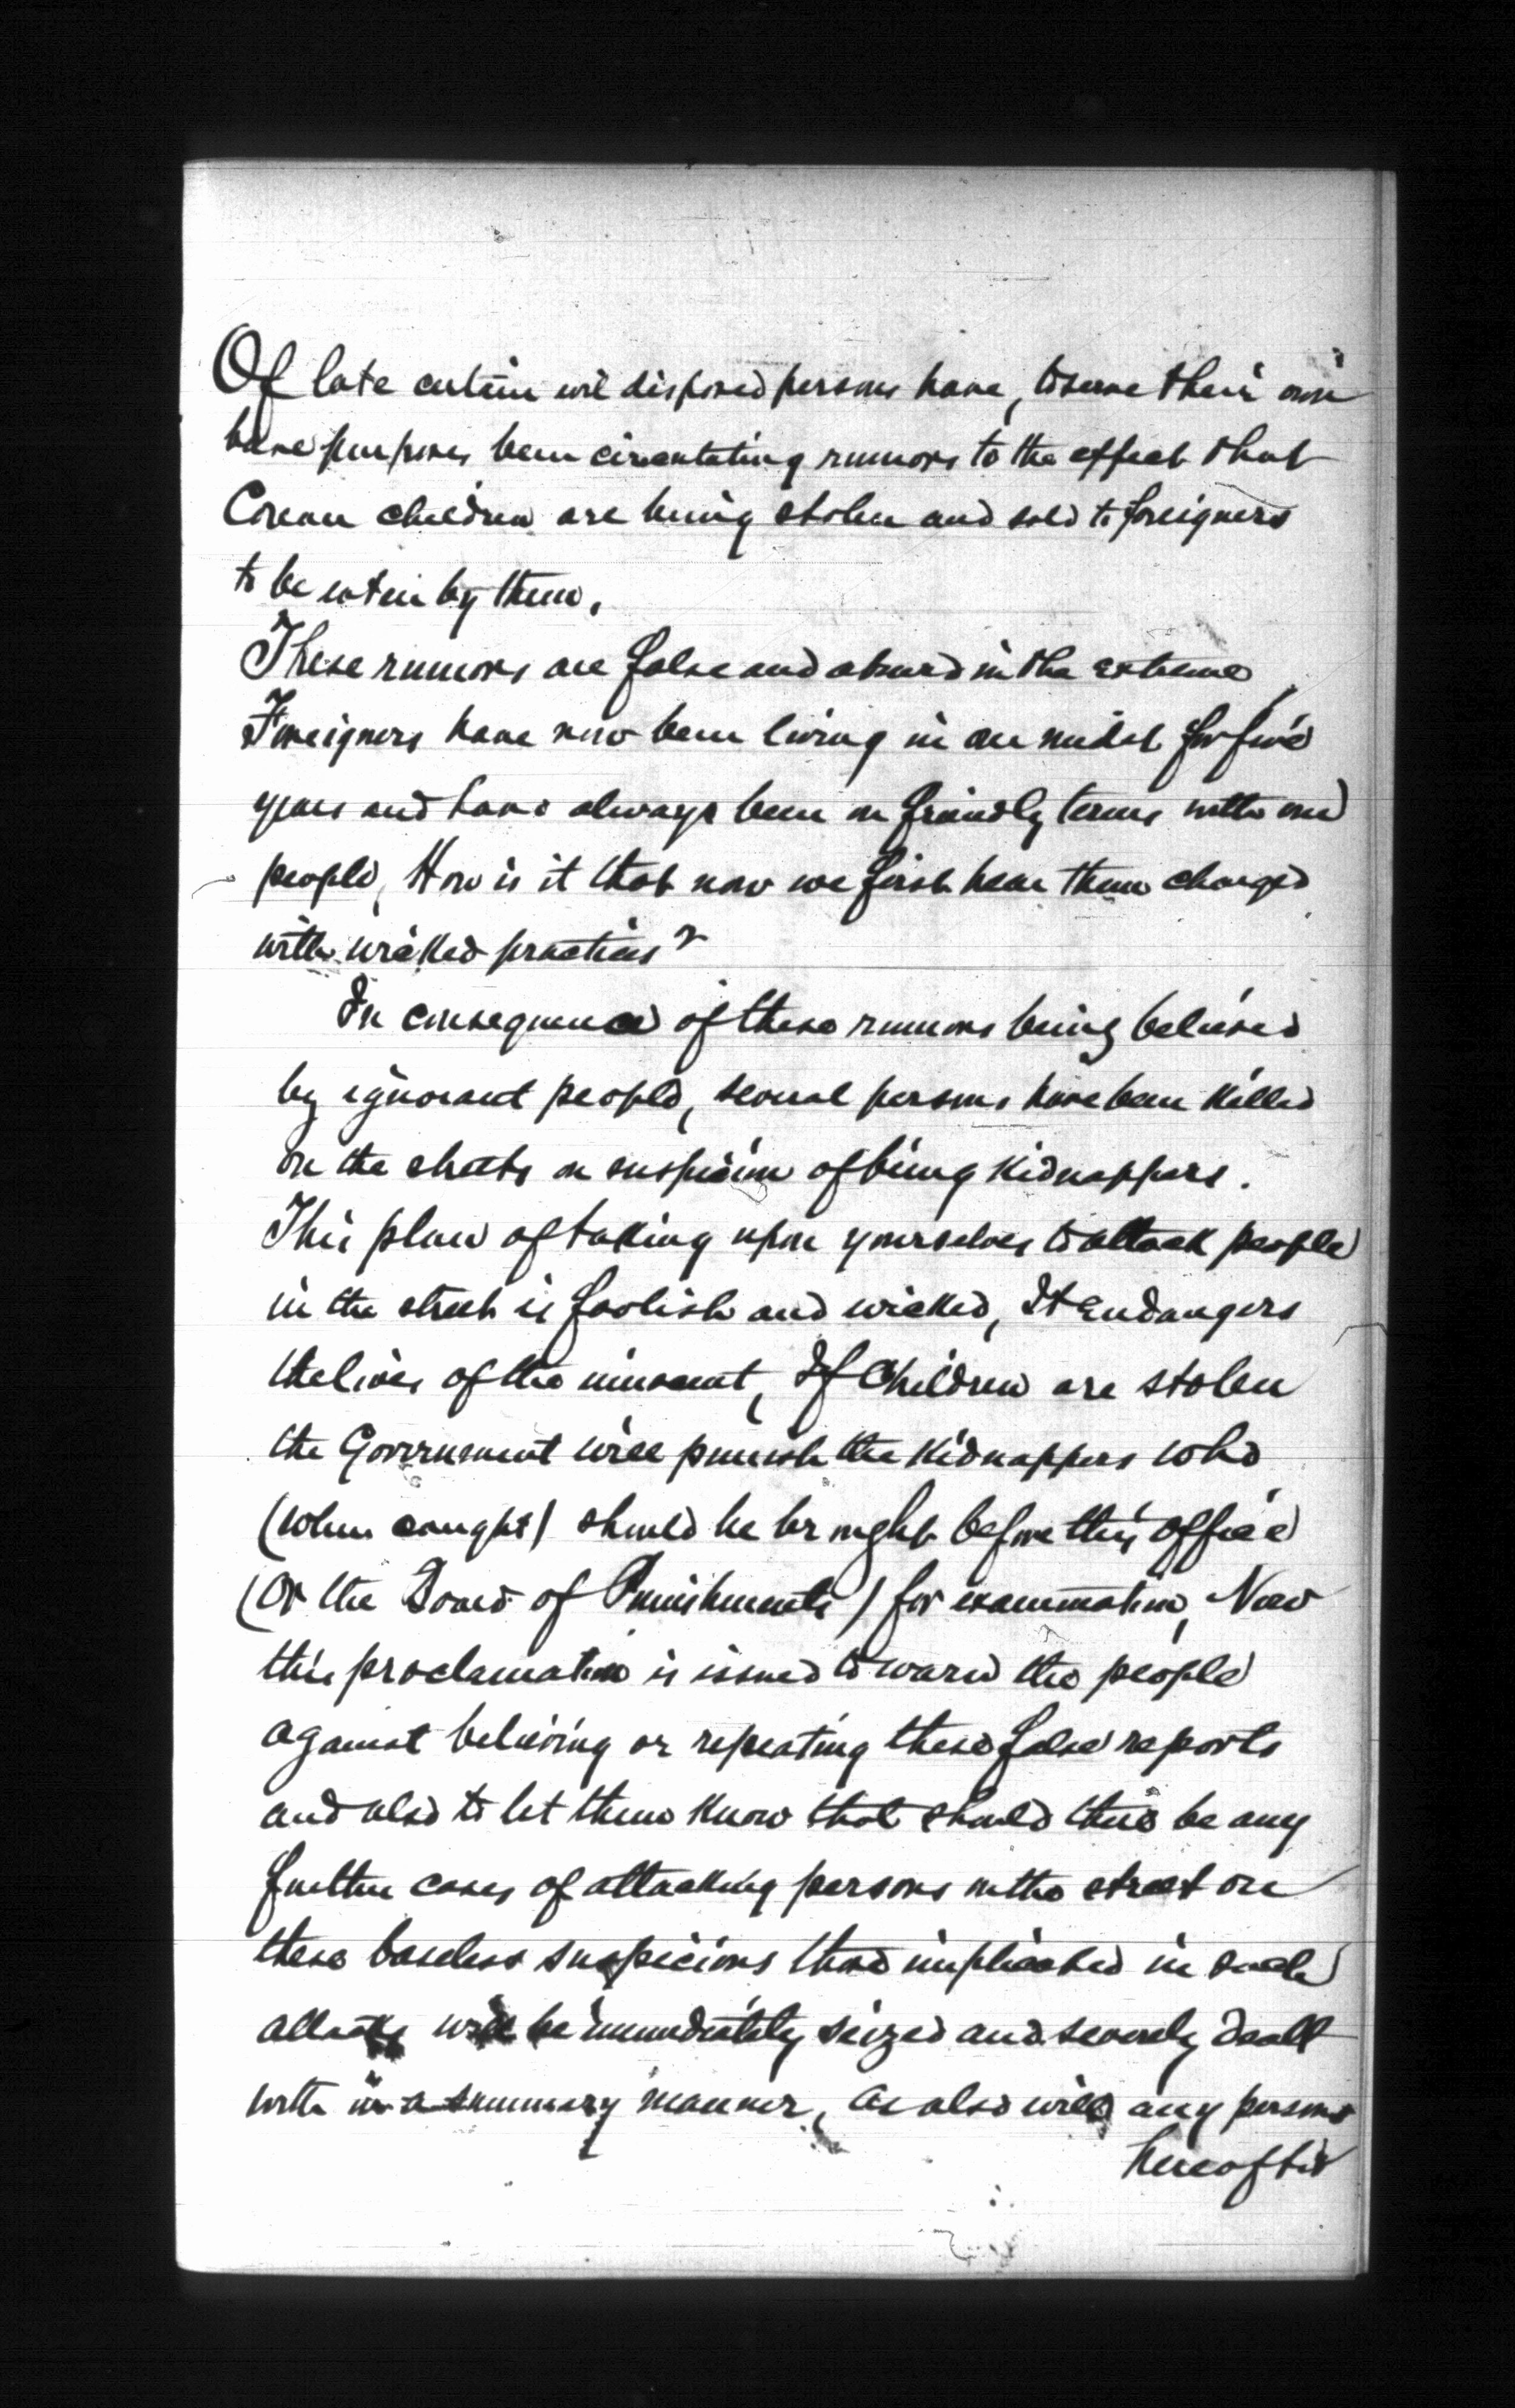 Of late certain evil disposed persons have, to serve their own
base purposes been circulating rumors to the effect that
Corean children are being stolen and sold to foreigners
to be eaten by them.
These rumors are false and absurd in the extreme
Foreigners have now been living in our midst for five
years and have always been on friendly terms with our
people, How is it that now we first hear them charged
with wicked practices?
In consequence of these rumors being believed
by ignorant people, several persons have been killed
on the streets on suspicion of being kidnappers.
This plan of taking upon yourselves to attack people
in the street is foolish and wicked, It endangers
the lives of the innocent, If Children are stolen
the Government will punish the kidnappers who
(when caught) should be brought before this office
(or the Board of Punishments) for examination, Now
this proclamation is issued to warn the people
against believing or repeating these false reports
and also to let them know that should there be any
further cases of attacking persons in the street on
these baseless suspicions those implicated in such
attacks will be immediately seized and severely dealt
with in a summary manner, as also will any persons
hereafter